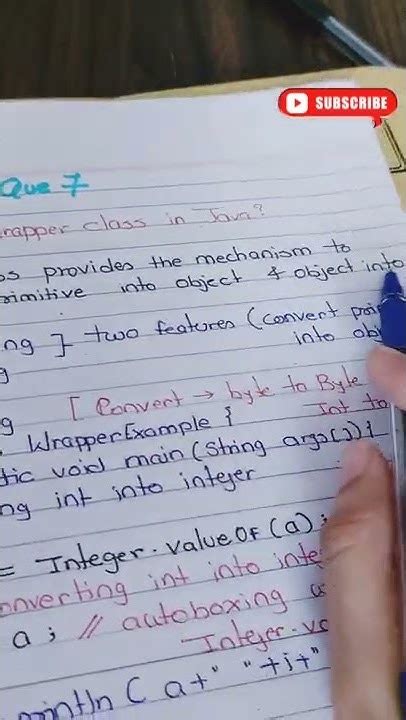 SUBSCRIBE
Que 7
rapper class in Java?
provides the mechanism to
rimitive into object & object into
ng } two features (convert
into
[ Convert → byte to Byte
Int to
WrapperExample {
tic void main (String args[]) {
ng int into integer
= Integer.valueOf (a);
onverting int into inte
a; // autoboxing
Integer.va
println ( a+" "+i+"